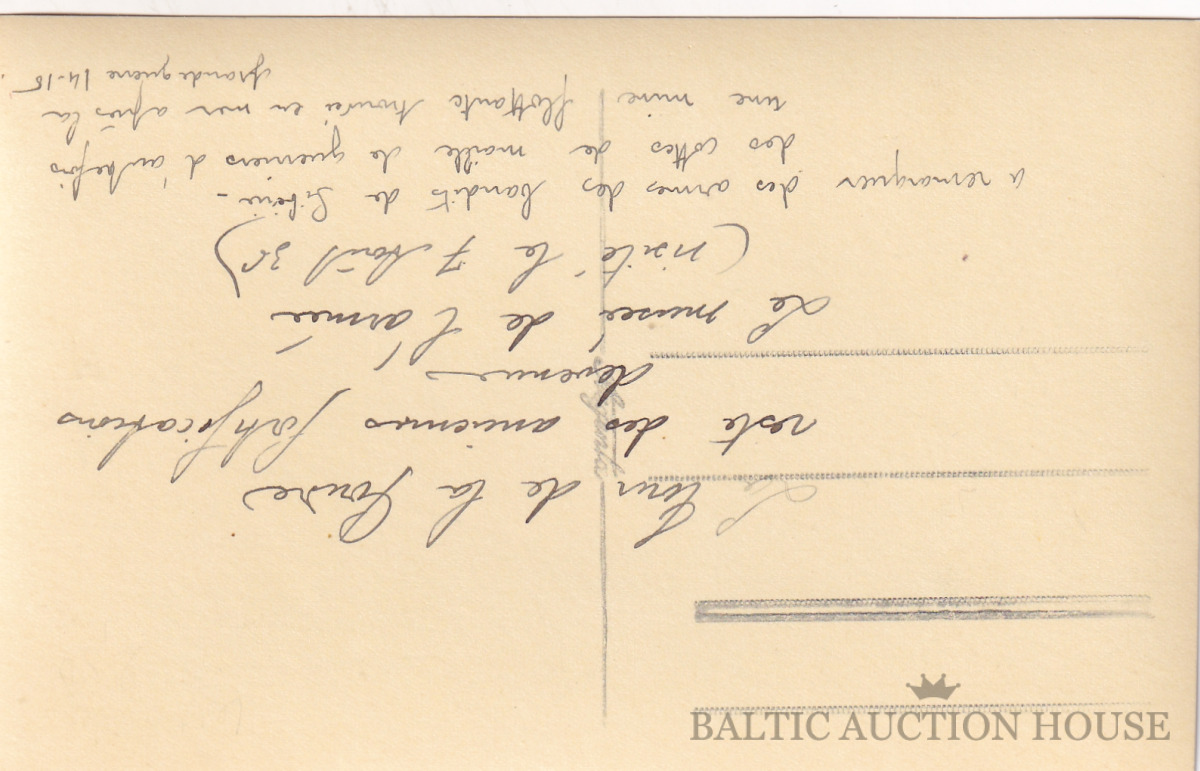 La Tour de la Poudre
reste des anciennes fortifications
devenue
Le musée de l'armée
(visité le 7 Août 35)
a remarquer des armes des bandits de Sibérie -
des cottes de maille de guerriers d'autrefois
une mine flottante trouvée en mer après la
grande guerre 14-18.
BALTIC AUCTION HOUSE